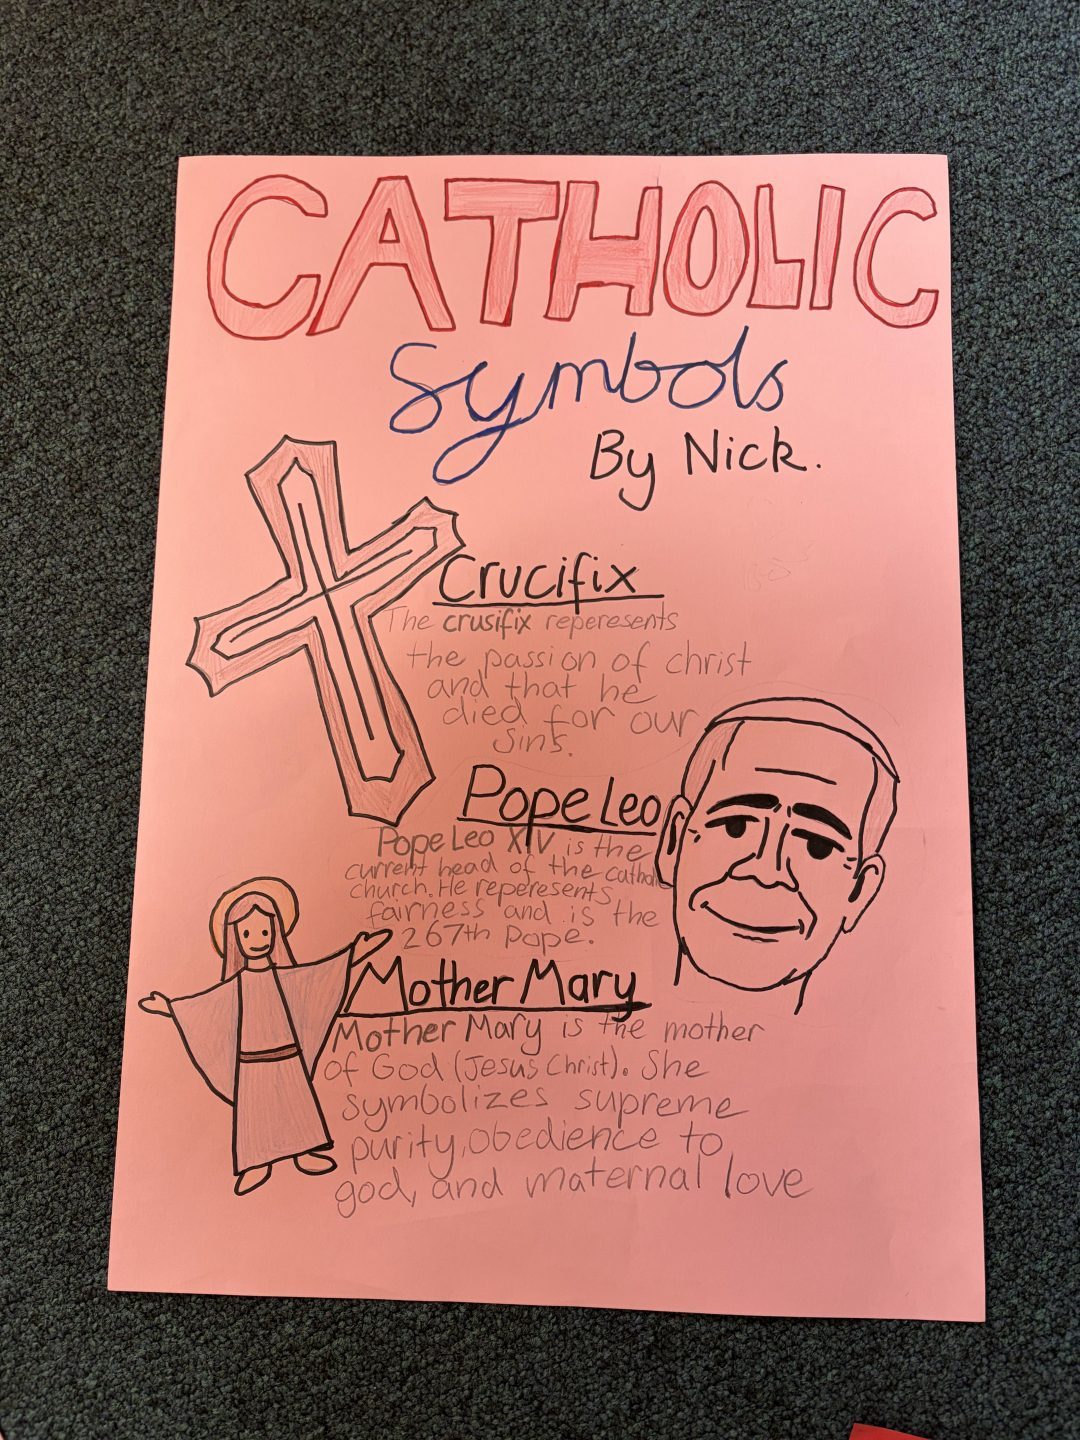 CATHOLIC
Symbols
By Nick.
Crucifix
The crusifix reperesents
the passion of christ
and that he
died for our
sins.
Pope Leo
Pope Leo XIV is the
current head of the catholic
church. He reperesents
fairness and is the
267th Pope.
Mother Mary
Mother Mary is the mother
of God (Jesus Christ). She
symbolizes supreme
purity, obedience to
god, and maternal love